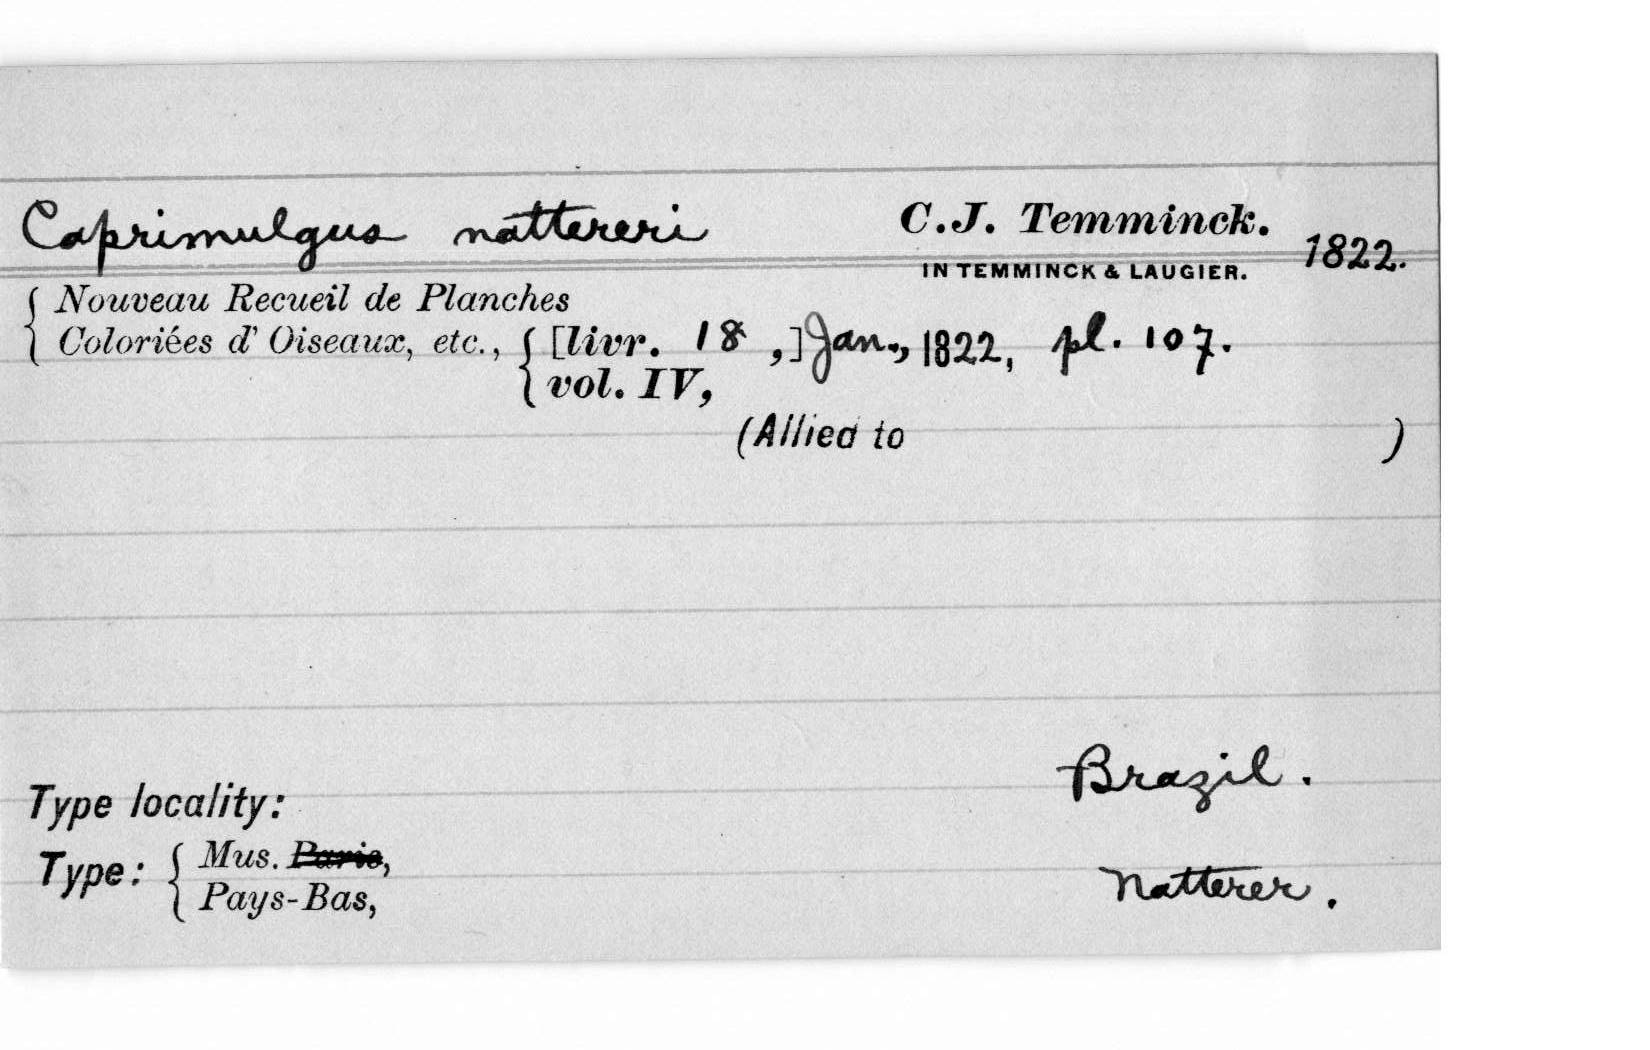 Caprimulgus nattereri C.J. Temminck.
IN TEMMINCK & LAUGIER. 1822.
Nouveau Recueil de Planches
Coloriées d' Oiseaux, etc., [livr. 18 ,] Jan., 1822, pl. 107.
vol. IV,
(Allied to )
Brazil.
Type locality:
Type: Mus. Paris,
Pays-Bas, Natterer.